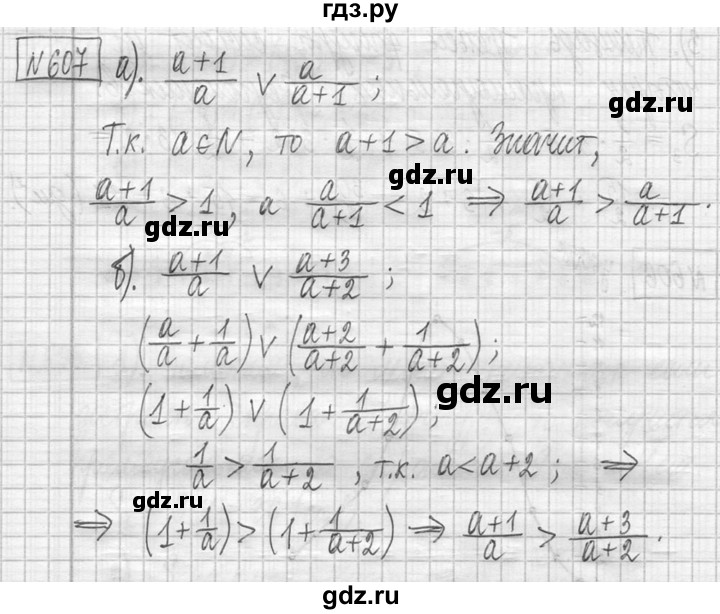 гдз.ру
№607 а). \frac{a+1}{a} ∨ \frac{a}{a+1};
gdz.ru
Т.к. a∈N, то a+1>a. Значит,
gdz.ru
\frac{a+1}{a}>1, а \frac{a}{a+1}<1 ⇒ \frac{a+1}{a}>\frac{a}{a+1}.
gdz.ru
б). \frac{a+1}{a} ∨ \frac{a+3}{a+2};
(\frac{a}{a}+\frac{1}{a}) ∨ (\frac{a+2}{a+2}+\frac{1}{a+2});
gdz.ru
(1+\frac{1}{a}) ∨ (1+\frac{1}{a+2});
\frac{1}{a}>\frac{1}{a+2}, т.к. a<a+2; ⇒
gdz.ru
⇒ (1+\frac{1}{a})>(1+\frac{1}{a+2}) ⇒ \frac{a+1}{a}>\frac{a+3}{a+2}.
gdz.ru